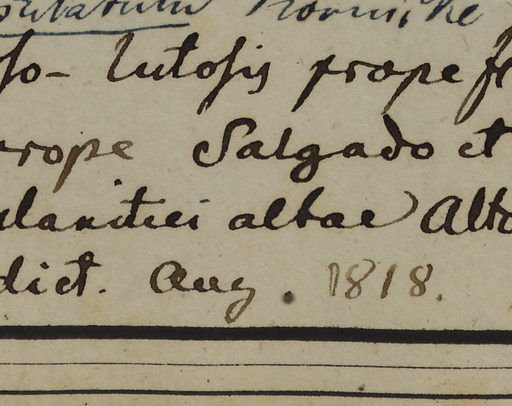 Kornicke
so-lutosis prope
prope Salgado et
planitiei altae Alto
dict. Aug. 1818.